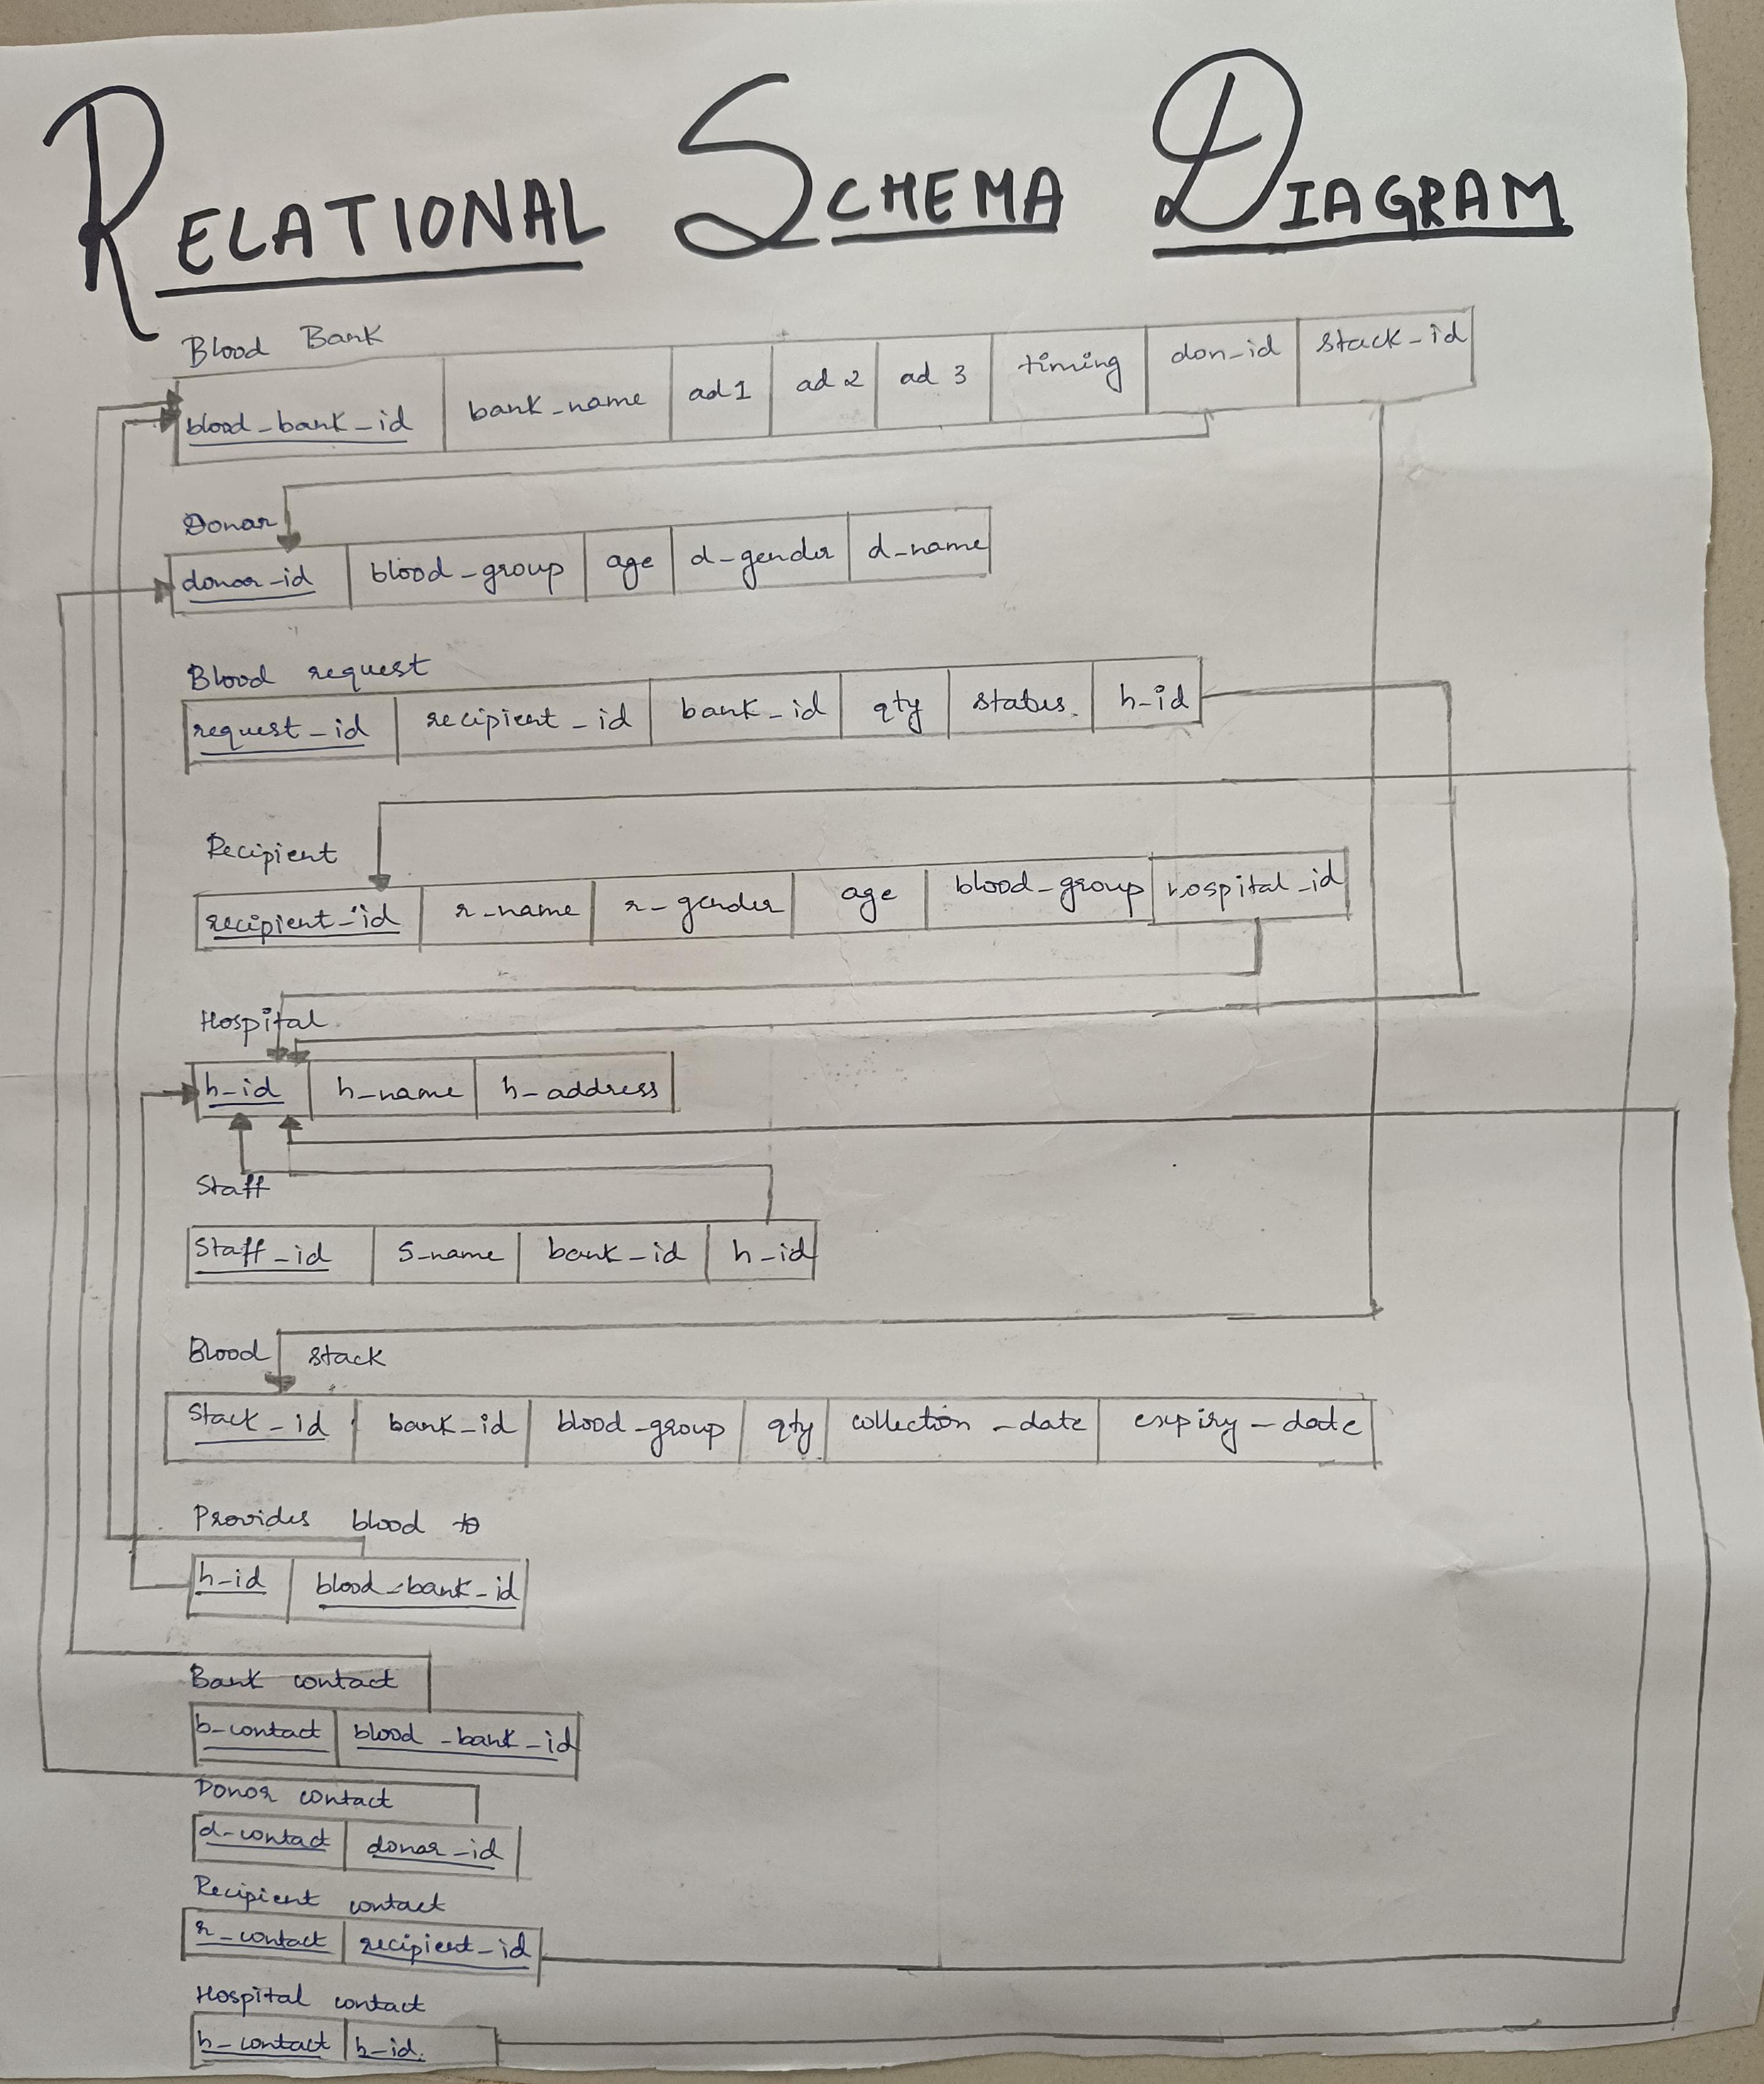 RELATIONAL SCHEMA DIAGRAM
Blood Bank
blood_bank_id bank_name ad1 ad 2 ad 3 timing don_id stack_id
Donar
donar_id blood_group age d_gender d_name
Blood request
request_id recipient_id bank_id qty status h_id
Recipient
recipient_id r_name r_gender age blood_group hospital_id
Hospital
h_id h_name h_address
Staff
Staff_id S_name bank_id h_id
Blood stack
Stack_id bank_id blood_group qty collection_date expiry_date
Provides blood to
h_id blood_bank_id
Bank contact
b_contact blood_bank_id
Donor contact
d_contact donar_id
Recipient contact
r_contact recipient_id
Hospital contact
h_contact h_id.